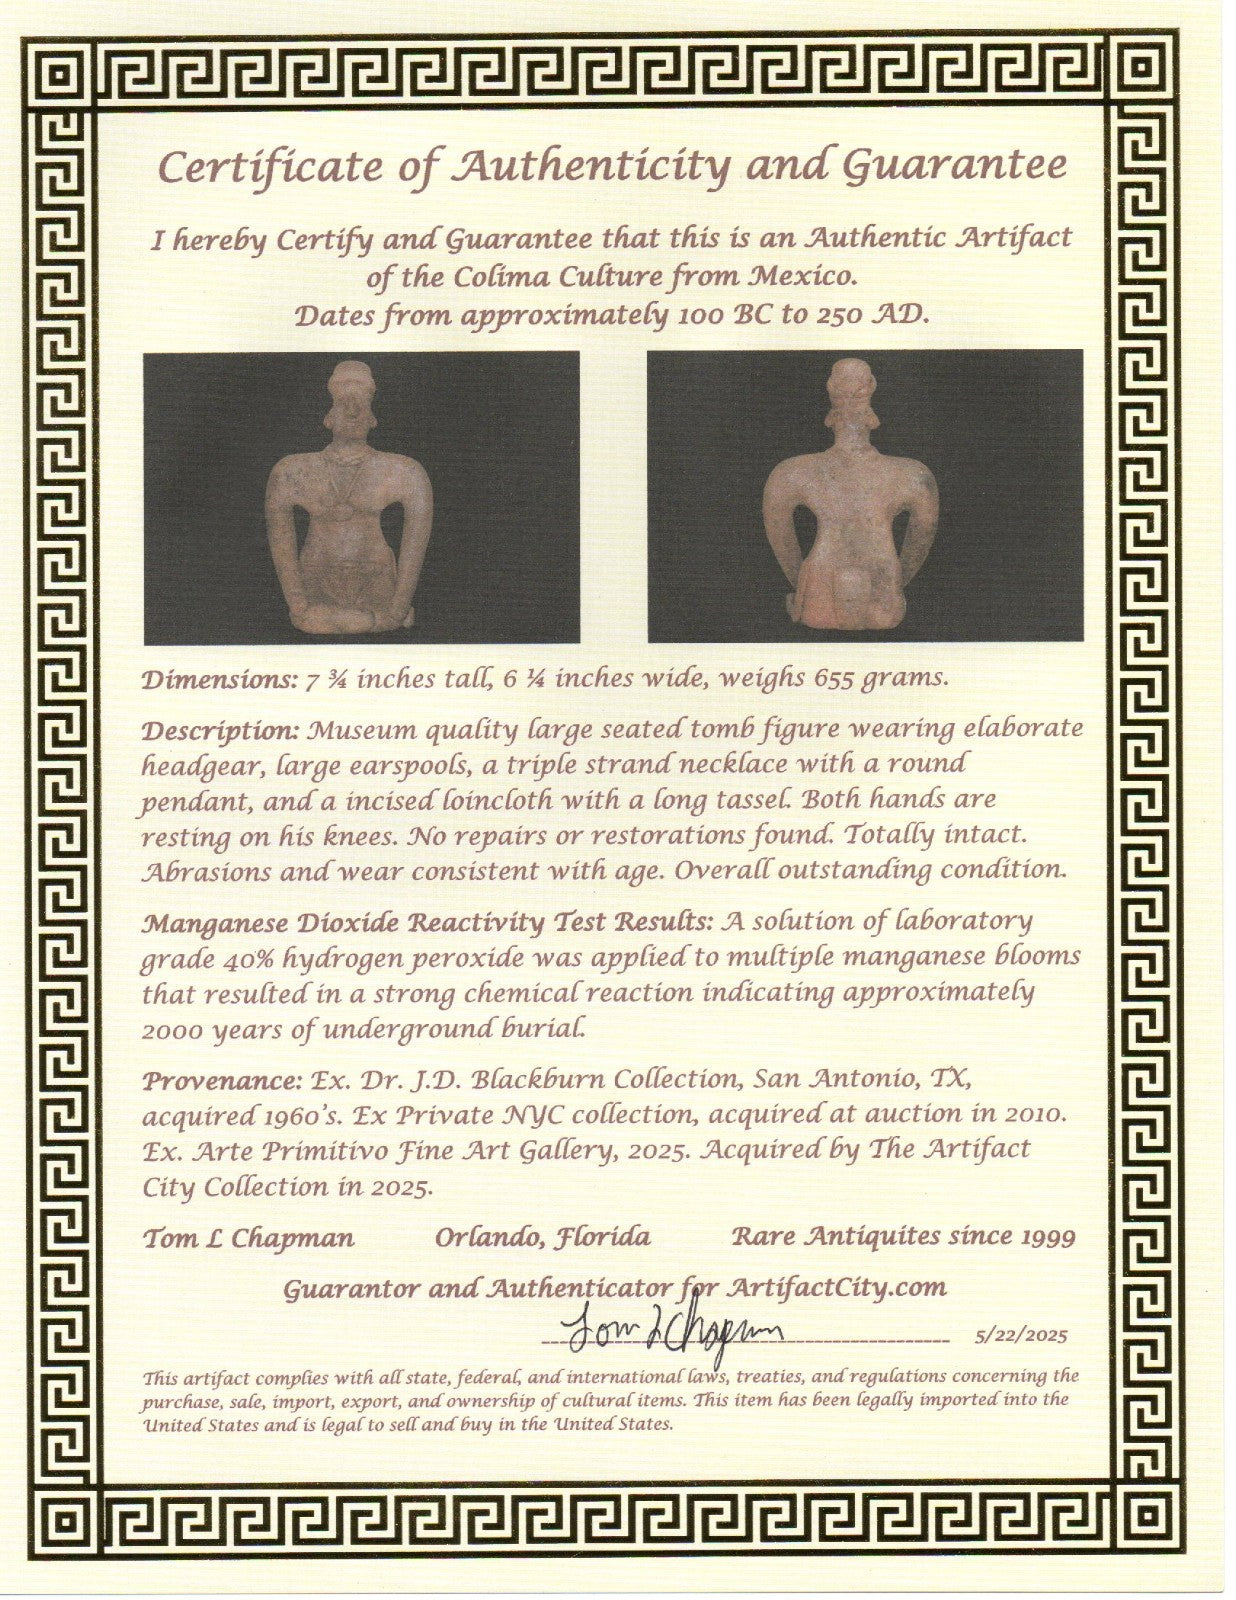 Certificate of Authenticity and Guarantee
I hereby Certify and Guarantee that this is an Authentic Artifact
of the Colima Culture from Mexico.
Dates from approximately 100 BC to 250 AD.
Dimensions: 7 ¾ inches tall, 6 ¼ inches wide, weighs 655 grams.
Description: Museum quality large seated tomb figure wearing elaborate
headgear, large earspools, a triple strand necklace with a round
pendant, and a incised loincloth with a long tassel. Both hands are
resting on his knees. No repairs or restorations found. Totally intact.
Abrasions and wear consistent with age. Overall outstanding condition.
Manganese Dioxide Reactivity Test Results: A solution of laboratory
grade 40% hydrogen peroxide was applied to multiple manganese blooms
that resulted in a strong chemical reaction indicating approximately
2000 years of underground burial.
Provenance: Ex. Dr. J.D. Blackburn Collection, San Antonio, TX,
acquired 1960's. Ex Private NYC collection, acquired at auction in 2010.
Ex. Arte Primitivo Fine Art Gallery, 2025. Acquired by The Artifact
City Collection in 2025.
Tom L Chapman Orlando, Florida Rare Antiquites since 1999
Guarantor and Authenticator for ArtifactCity.com
Tom L Chapman 5/22/2025
This artifact complies with all state, federal, and international laws, treaties, and regulations concerning the
purchase, sale, import, export, and ownership of cultural items. This item has been legally imported into the
United States and is legal to sell and buy in the United States.